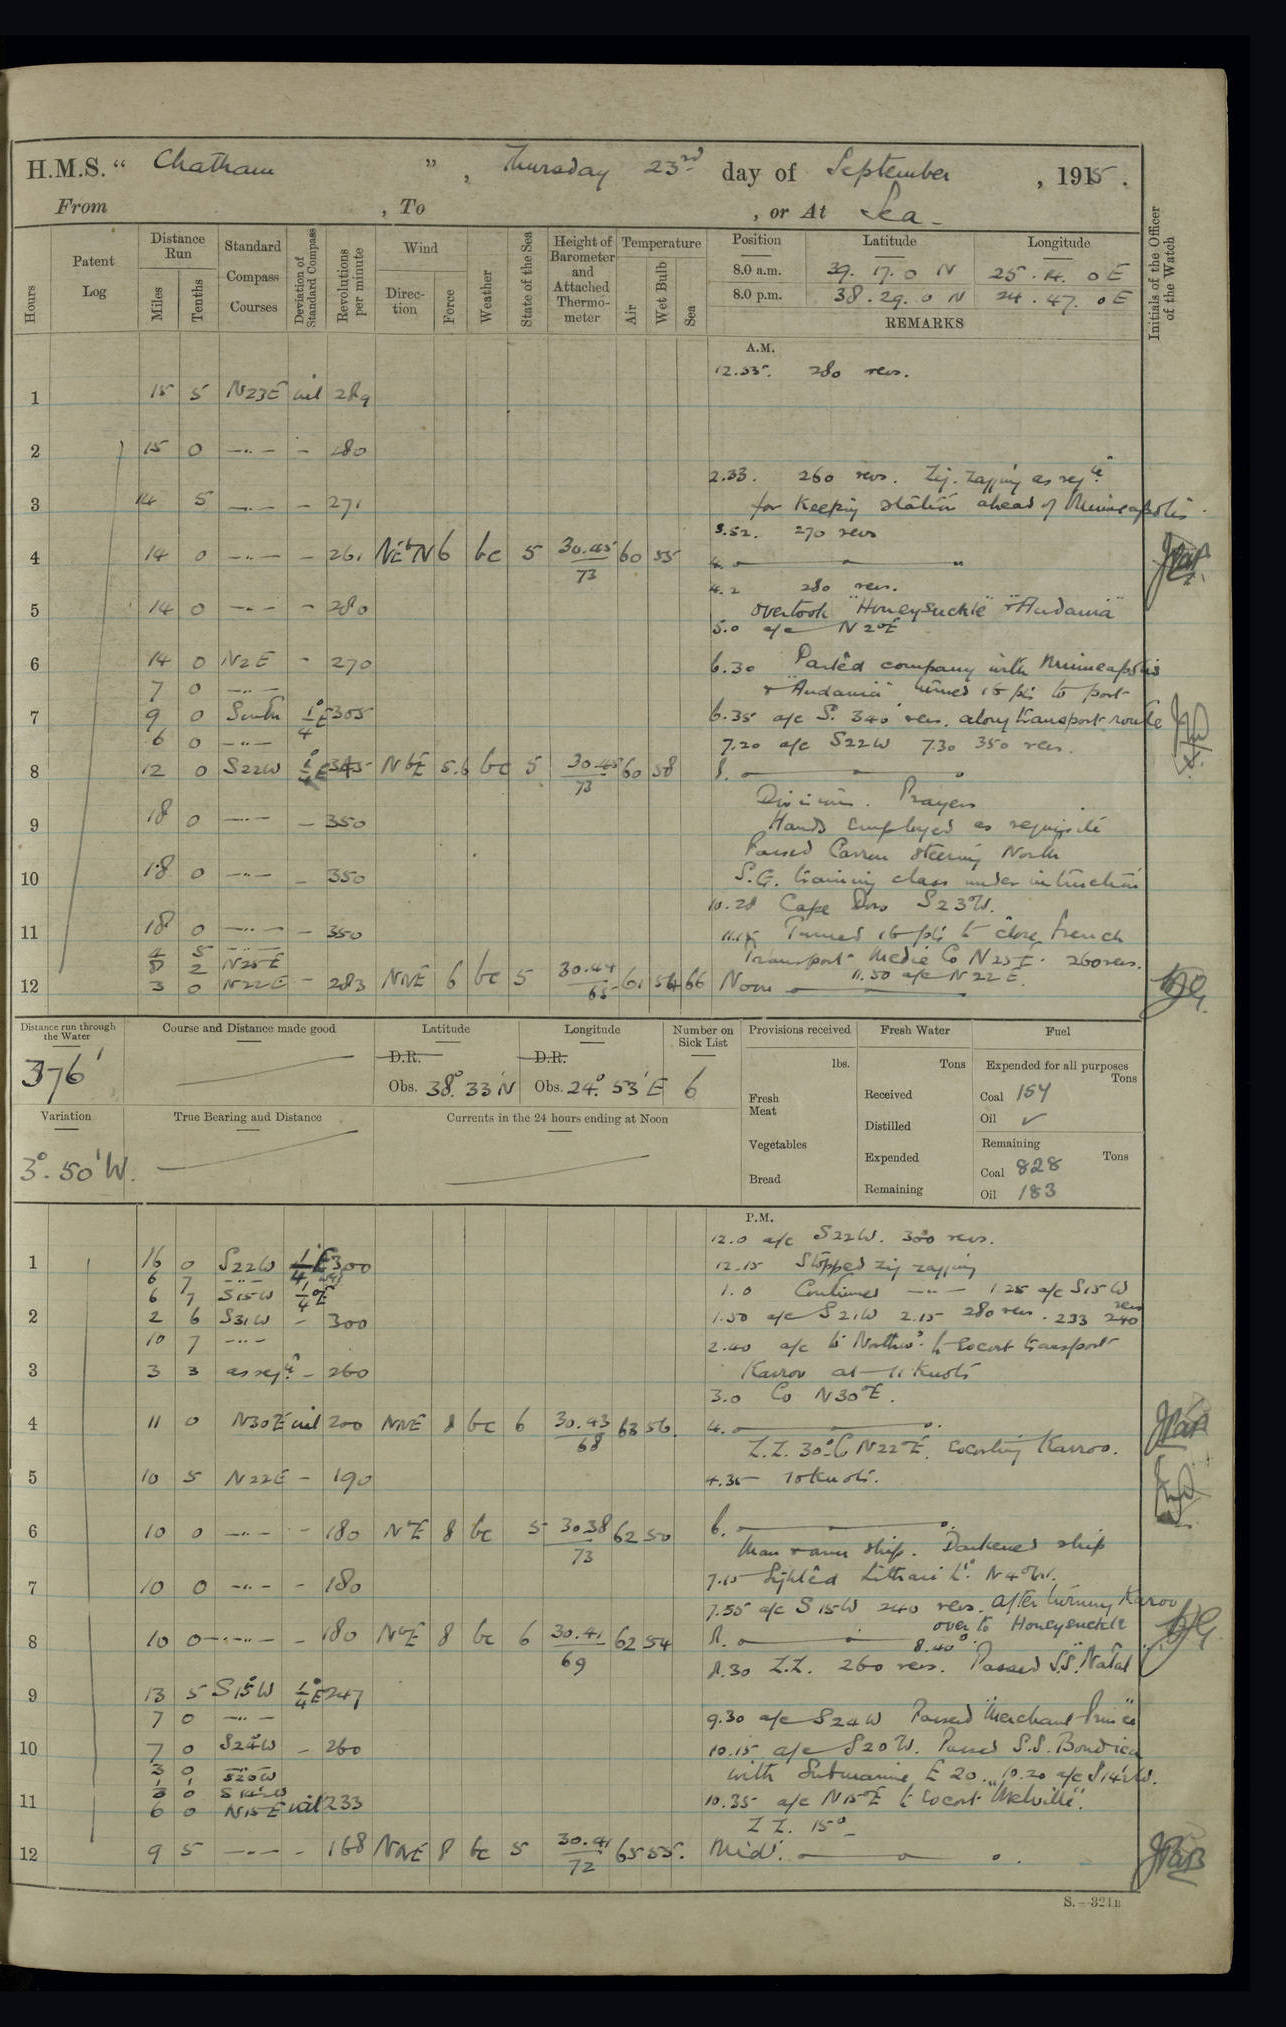 H.M.S. “ Chatham ” , Thursday 23rd day of September , 1915 .
From , To , or At Sea -
Hours
Patent Log
Distance Run
Miles
Tenths
Standard Compass Courses
Deviation of Standard Compass
Revolutions per minute
Wind
Direction
Force
Weather
State of the Sea
Height of Barometer and Attached Thermometer
Temperature
Air
Wet Bulb
Sea
Position Latitude Longitude
8.0 a.m. 39. 17. 0 N 25. 14. 0 E
8.0 p.m. 38. 29. 0 N 24. 47. 0 E
REMARKS
Initials of the Officer of the Watch
A.M.
12.35. 280 revs.
1 15 5 N23E nil 289
2 15 0 —"— - 280
2.33. 260 revs. Zig. zagging as reqte
3 14 5 —"— - 271
for keeping station ahead of Minneapolis.
3.52. 270 revs
4 14 0 —"— - 261 NEbN 6 bc 5 30.45 60 55 4.
73
4.2 280 revs.
5 14 0 —"— - 280
overtook "Honeysuckle" + "Andania"
5.0 a/c N2°E
6 14 0 N2E - 270
6.30 Parted company with Minneapolis
7 0 —"—
+ "Andania" turned 16 pts to port
7 9 0 South 1/4°E 305
6.35 a/c S. 340 revs. along transport route
6 0 —"—
7.20 a/c S22W 7.30 350 revs.
8 12 0 S22W 1/4°E 345 NbE 5.6 bc 5 30.45 60 58 8.
73
Divisions. Prayers
9 18 0 —"— - 350
Hands employed as requisite
Passed steering North
10 18 0 —"— - 350
S.G. training class under instruction
10.28 Cape Doro S23°W.
11 18 0 —"— - 350
11.15 Turned 16 pts to close French
4 5 —"—
8 2 N25E
Transport Medie Co N25E. 260 revs.
11.50 a/c N22E.
12 3 0 N22E - 283 NNE 6 bc 5 30.44 61 54 66 Noon
65
Distance run through the Water
376'
Course and Distance made good
Latitude
D.R.
Obs. 38° 33' N
Longitude
D.R.
Obs. 24° 53' E
Number on Sick List
6
Provisions received
lbs.
Fresh Meat
Vegetables
Bread
Fresh Water
Tons
Received
Distilled
Expended
Remaining
Fuel
Expended for all purposes
Tons
Coal 154
Oil ✓
Remaining
Tons
Coal 828
Oil 183
Variation
3°. 50' W.
True Bearing and Distance
Currents in the 24 hours ending at Noon
P.M.
12.0 a/c S22W. 300 revs.
1 16 0 S22W 1/4°E 300
12.15 Stopped zig zagging
6 7 —"—
6 7 S15W 1/4°E
1.0 Continued —"— 1.25 a/c S15W
2 2 6 S31W - 300
1.50 a/c S21W 2.15 280 revs. 233 240 revs
10 7 —"—
2.40 a/c to Northwd. to escort transport
3 3 3 as reqte - 260
Karroo at 11 knots
3.0 Co N30°E.
4 11 0 N30°E nil 200 NNE 8 bc 6 30.43 63 56. 4.
68
Z.Z. 30° Co N22°E. escorting Karroo.
5 10 5 N22E - 190
4.35 10 knots.
6 10 0 —"— - 180 NbE 8 bc 5 30.38 62 50 6.
73
Man + arm ship. Darkened ship
7 10 0 —"— - 180
7.15 Sighted Lithari Lt. N4°W.
7.55 a/c S15W 240 revs. after turning Karoo
over to Honeysuckle
8 10 0 —"— - 180 NbE 8 bc 6 30.41 62 54 8.
69
8.40
8.30 Z.Z. 260 revs. Passed S.S. "Natal"
9 13 5 S15°W 1/4°E 247
7 0 —"—
9.30 a/c S24W Passed "Merchant Prince"
10 7 0 S24°W - 260
10.15 a/c S20W. Passed S.S. Boudica
3 0 S20W
with Submarine E 20. 10.20 a/c S14½W.
3 0 S14½W
11 6 0 N15E nil 233
10.35 a/c N15°E to escort "Melville".
Z Z. 15°
12 9 5 —"— - 168 NNE 8 bc 5 30.41 65 55. Midt.
72
S.—321B